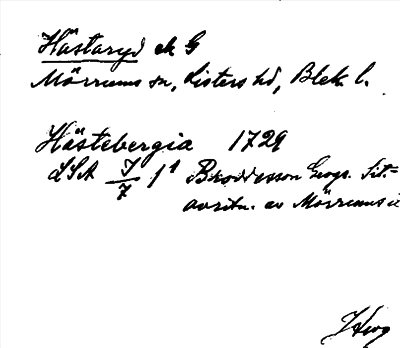 Hästaryd ek G
Mörrums sn, Listers hd, Blek. l.
Hästebergia 1729
LSA I/7 1¹ Brodersson Geogr. Sit.=
avritn. av Mörrums